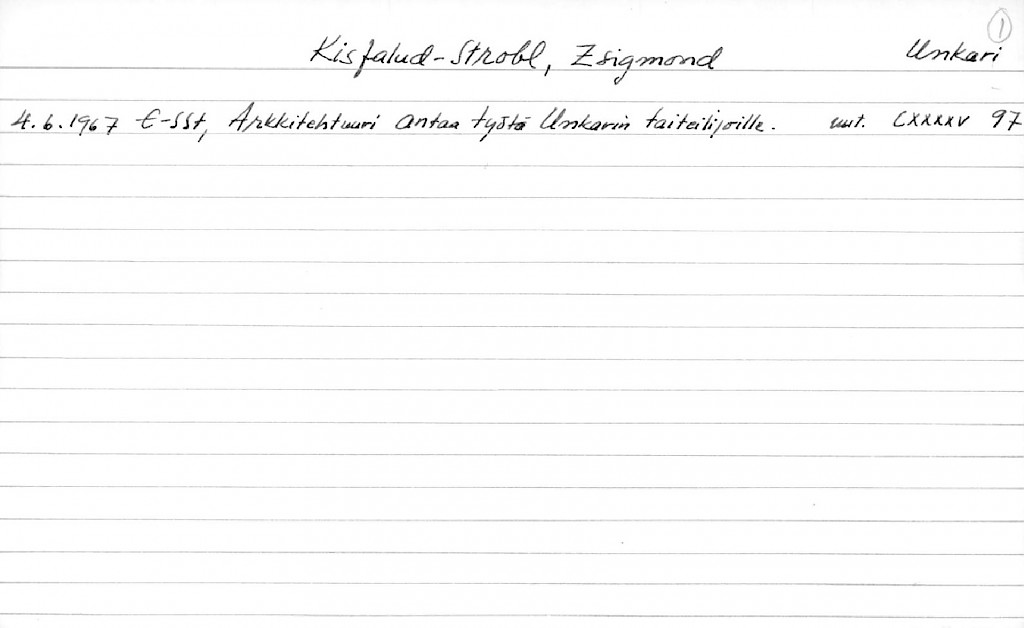 1
Kisfalud-Strobl, Zsigmond Unkari
4.6.1967 E-SSt, Arkkitehtuuri antaa työtä Unkarin taiteilijoille. uut. CXXXXV 97